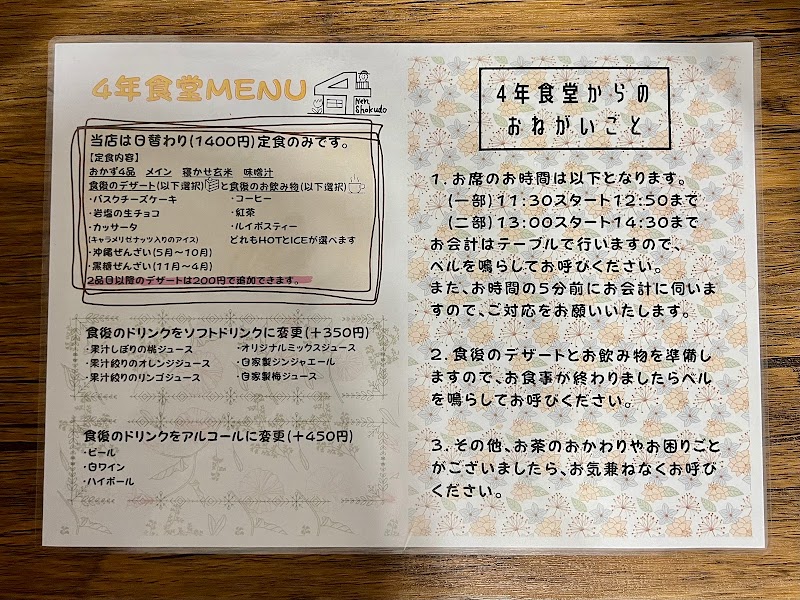 4年食堂MENU
Nen
Shokudo
当店は日替わり(1400円)定食のみです。
【定食内容】
おかず4品 メイン 寝かせ玄米 味噌汁
食後のデザート(以下選択)と食後のお飲み物(以下選択)
・バスクチーズケーキ ・コーヒー
・岩塩の生チョコ ・紅茶
・カッサータ ・ルイボスティー
(キャラメリゼナッツ入りのアイス) どれもHOTとICEが選べます
・沖縄ぜんざい(5月~10月)
・黒糖ぜんざい(11月~4月)
2品目以降のデザートは200円で追加できます。
食後のドリンクをソフトドリンクに変更(+350円)
・果汁しぼりの桃ジュース ・オリジナルミックスジュース
・果汁絞りのオレンジジュース ・自家製ジンジャエール
・果汁絞りのリンゴジュース ・自家製梅ジュース
食後のドリンクをアルコールに変更(+450円)
・ビール
・白ワイン
・ハイボール
4年食堂からの
おねがいごと
1.お席のお時間は以下となります。
(一部)11:30スタート12:50まで
(二部)13:00スタート14:30まで
お会計はテーブルで行いますので、
ベルを鳴らしてお呼びください。
また、お時間の5分前にお会計に伺いま
すので、ご対応をお願いいたします。
2.食後のデザートとお飲み物を準備し
ますので、お食事が終わりましたらベル
を鳴らしてお呼びください。
3.その他、お茶のおかわりやお困りごと
がございましたら、お気兼ねなくお呼び
ください。